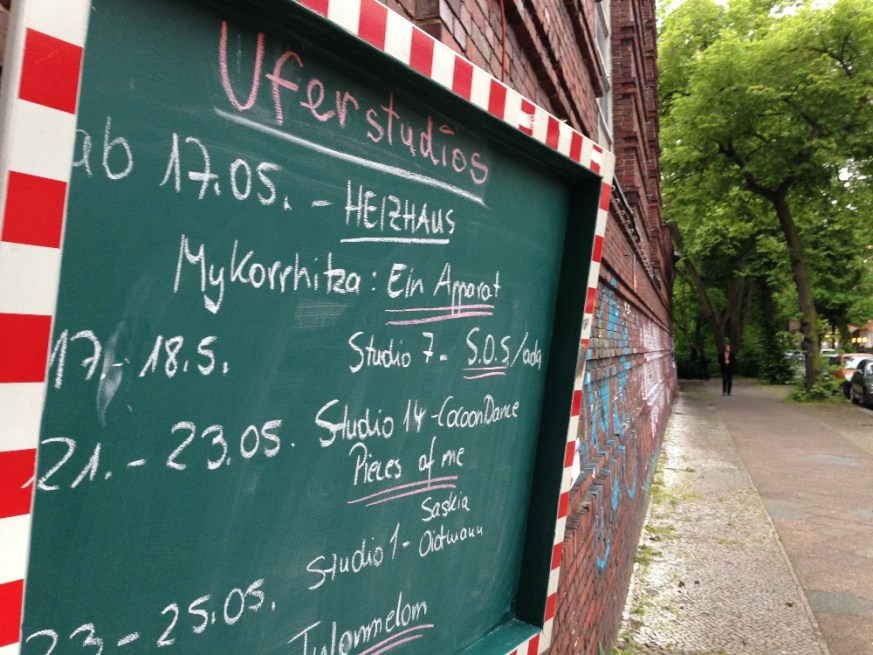 Uferstudios
ab 17.05. - HEIZHAUS
Mykorrhitza: Ein Apparat
17.-18.5. Studio 7 - S.O.S./ada
21.-23.05. Studio 14-CocoonDance
Pieces of me
Saskia
Studio 1- Oidtmann
23-25.05.